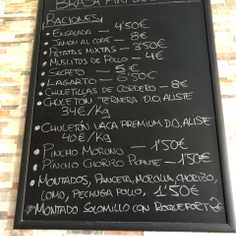 RACIONES
• ENSALADA — 4'50€
• JAMON AL CORTE — 8€
• PATATAS MIXTAS — 3'50€
• MUSLITOS DE POLLO — 4€
• SECRETO — 5€
• LAGARTO — 5'50€
• CHULETILLAS DE CORDERO — 8€
• CHULETON TERNERA D.O. ALISTE
34€/Kg
• CHULETÓN VACA PREMIUM D.O. ALISTE
40€/Kg
• PINCHO MORUNO — 1'50€
• PINCHO CHORIZO — 1'50€
• MONTADOS, PANCETA, MORCILLA, CHORIZO,
LOMO, PECHUGA POLLO, 1'50€
• MONTADO SOLOMILLO CON ROQUEFORT 3€